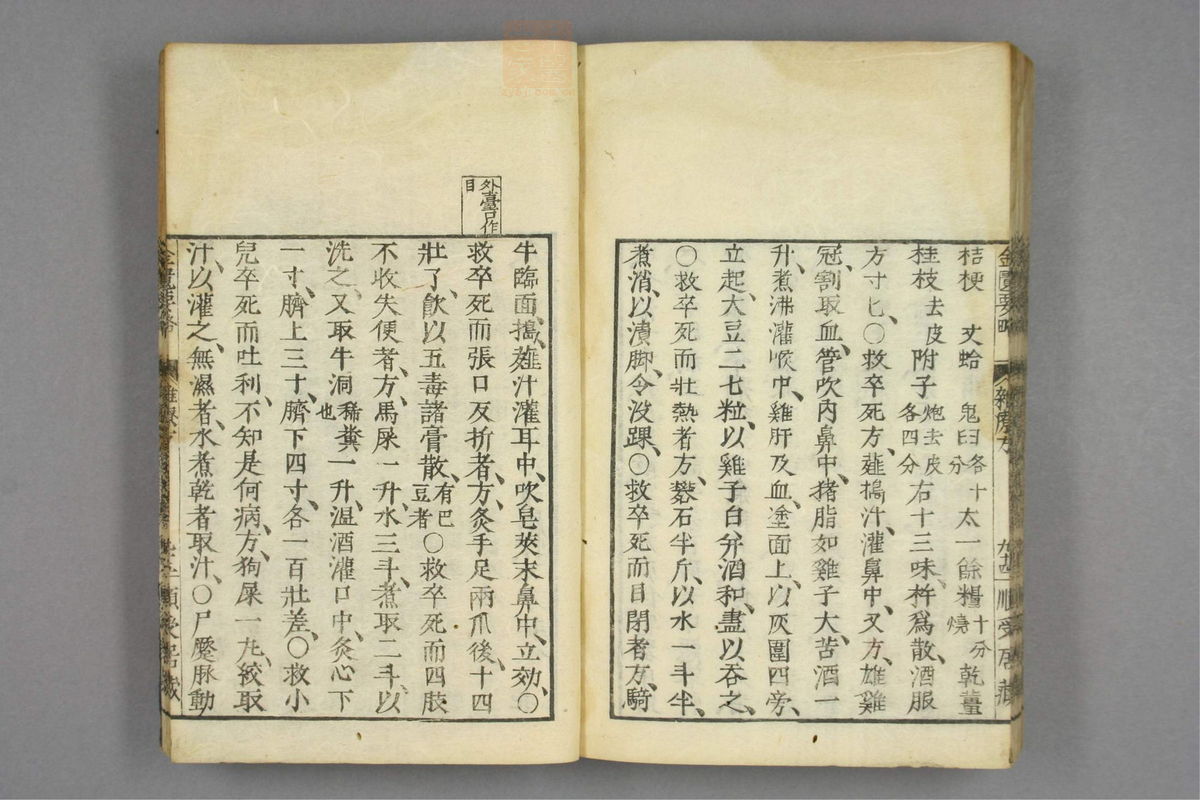 金匱要略 雜療方 順受居藏
桔梗 文蛤 鬼臼各十分 太一餘糧十分燒 乾薑
桂枝去皮 附子炮去皮各四分 右十三味杵爲散酒服
方寸匕○救卒死方、薤搗汁、灌鼻中、又方、雄雞
冠割取血、管吹內鼻中、猪脂如雞子大、苦酒一
升、煮沸灌喉中、雞肝及血、塗面上、以灰圍四旁、
立起、大豆二七粒、以雞子白幷酒和、盡以吞之、
○救卒死而壯熱者方、礬石半斤、以水一斗半、
煮消、以漬脚、令沒踝、○救卒死而目閉者方、騎
外臺口作目
牛臨面、搗薤汁灌耳中、吹皂莢末鼻中、立効、○
救卒死而張口反折者、方、灸手足兩爪後、十四
壯了、飮以五毒諸膏散、有巴豆者○救卒死而四肢
不收失便者、方、馬屎一升、水三斗、煮取二斗、以
洗之、又取牛洞稀糞也一升、温酒灌口中、灸心下
一寸、臍上三寸、臍下四寸、各一百壯、差、○救小
兒卒死而吐利、不知是何病、方、狗屎一丸、絞取
汁、以灌之、無濕者、水煮乾者取汁、○尸蹷脉動